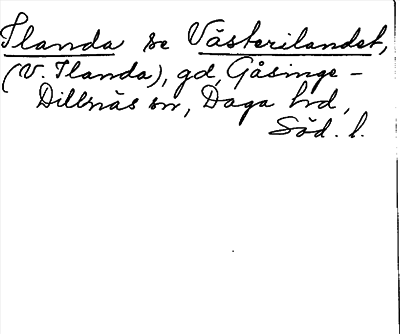 Ilanda se Västerilandet,
(V. Ilanda), gd, Gåsinge-
Dillnäs sn, Daga hd,
Söd. l.